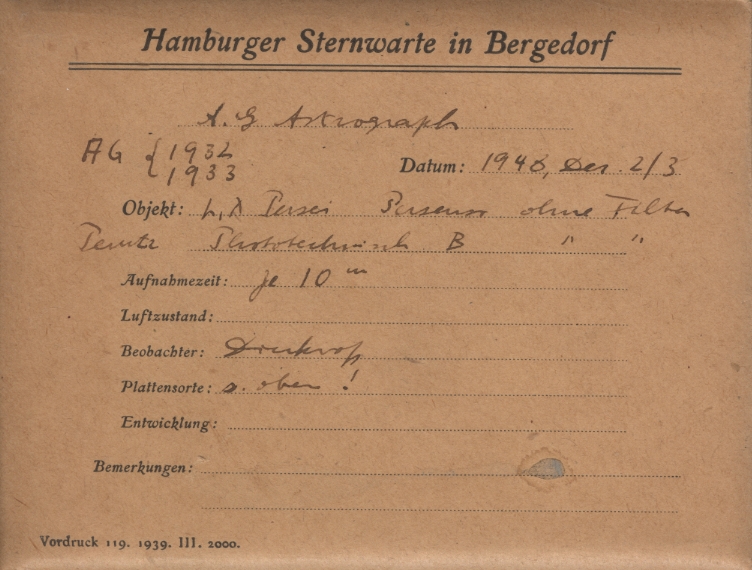 Hamburger Sternwarte in Bergedorf
A. G Astrograph
AG { 1932
1933
Datum: 1948, Dez. 2/3
Objekt: h, χ Persei ohne Filter
Perutz Phototechnisch B " "
Aufnahmezeit: je 10 m
Luftzustand:
Beobachter:
Plattensorte: s. oben !
Entwicklung:
Bemerkungen:
Vordruck 119. 1939. III. 2000.